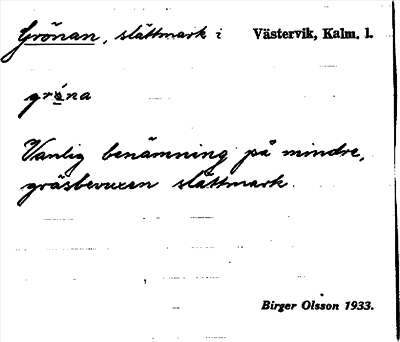 Grönan, slåttmark i Västervik, Kalm. l.
gröna
Vanlig benämning på mindre,
gräsbevuxen slåttmark.
Birger Olsson 1933.